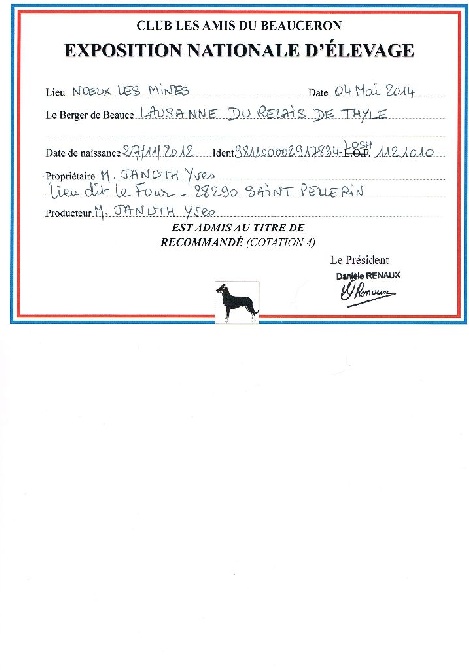 CLUB LES AMIS DU BEAUCERON
EXPOSITION NATIONALE D'ÉLEVAGE
Lieu NOEUX LES MINES Date 04 Mai 2014
Le Berger de Beauce LAUSANNE DU RELAIS DE THYLE
Date de naissance 27/11/2012 Ident 981100002917834 L.O.F. LOSH 1121010
Propriétaire M. Yves
Lieu dit le Four - 28290 SAINT PELLERIN
Producteur M. Yves
EST ADMIS AU TITRE DE
RECOMMANDÉ (COTATION 4)
Le Président
Danièle RENAUX